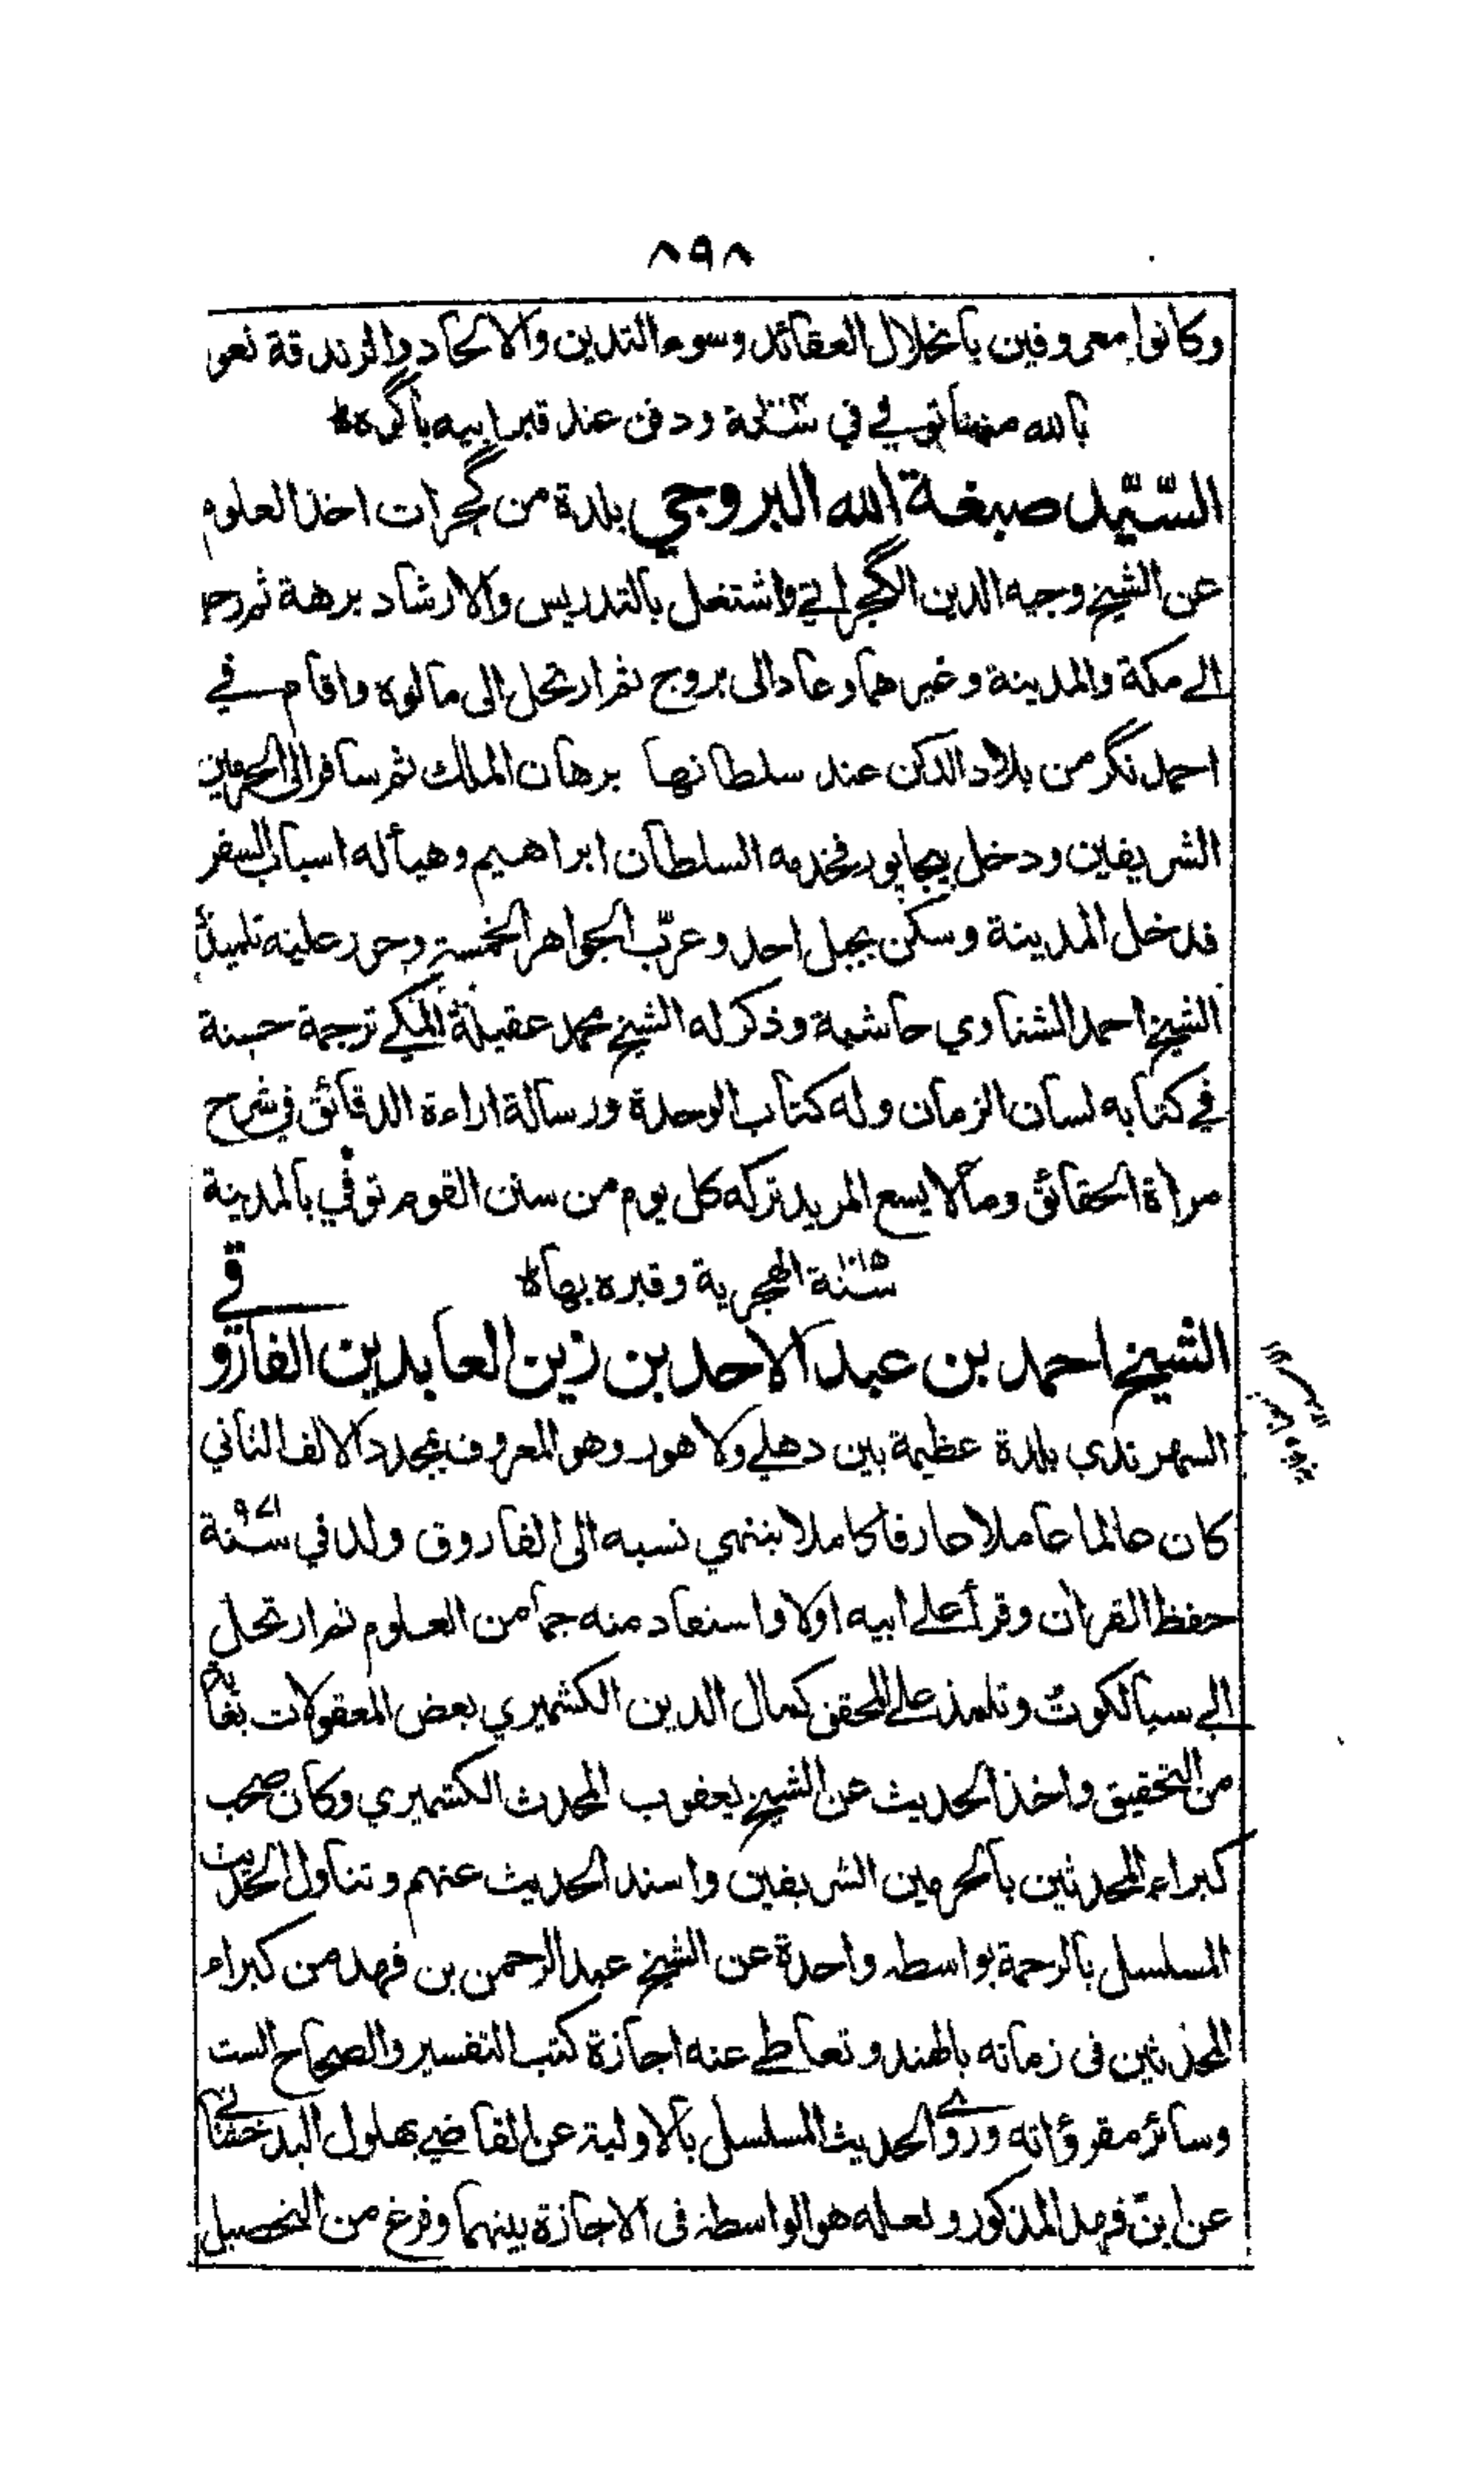 ٨٩٨
وكانوا معروفين بانحلال العقائد وسوء التدين والالحاد والزندقة نعو
بالله منها توفي في سنة ودفن عند قبر ابيه باگره
السّيّد صبغة الله البروجي بلدة من گجرات اخذ العلوم
عن الشيخ وجيه الدين الگجراتي واشتغل بالتدريس والارشاد برهة ثم رحل
الى مكة والمدينة وغيرهما وعاد الى بروج ثم ارتحل الى مالوه واقام في
احمد نگر من بلاد الدكن عند سلطانها برهان الملك ثم سافر الى الحرمين
الشريفين ودخل بيجاپور فخدمه السلطان ابراهيم وهيأ له اسباب السفر
فدخل المدينة وسكن بجبل احد وعرّب الجواهر الخمسة وحرر عليه تلميذه
الشيخ احمد الشناوي حاشية وذكر له الشيخ محمد عقيلة المكي ترجمة حسنة
في كتابه لسان الزمان وله كتاب الوحدة ورسالة اراءة الدقائق في شرح
مراة الحقائق ومالا يسع المريد تركه كل يوم من سنن القوم توفي بالمدينة
سنة ١٠١٥ الهجرية وقبره بها
الشيخ احمد بن عبد الاحد بن زين العابدين الفاروقي
السهرندي بلدة عظيمة بين دهلي ولاهور وهو المعروف بمجدد الالف الثاني
كان عالما عاملا عارفا كاملا ينتهي نسبه الى الفاروق ولد في سنة ٩٧١
حفظ القران وقرأ على ابيه اولا واستفاد منه جما من العلوم ثم ارتحل
الى سيالكوٹ وتلمذ على المحقق كمال الدين الكشميري بعض المعقولات بغاية
من التحقيق واخذ الحديث عن الشيخ يعقوب المحدث الكشميري وكان صحب
كبراء المحدثين بالحرمين الشريفين واسند الحديث عنهم وتناول الحديث
المسلسل بالرحمة بواسطة واحدة عن الشيخ عبد الرحمن بن فهد من كبراء
المحدثين في زمانه بالهند وتعاطى عنه اجازة كتب التفسير والصحاح الست
وسائر مقروءاته وروى الحديث المسلسل بالاولية عن القاضي بهلول البدخشاني
عن ابن فهد المذكور ولعله هو الواسطة في الاجازة بينهما وفرغ من التحصيل